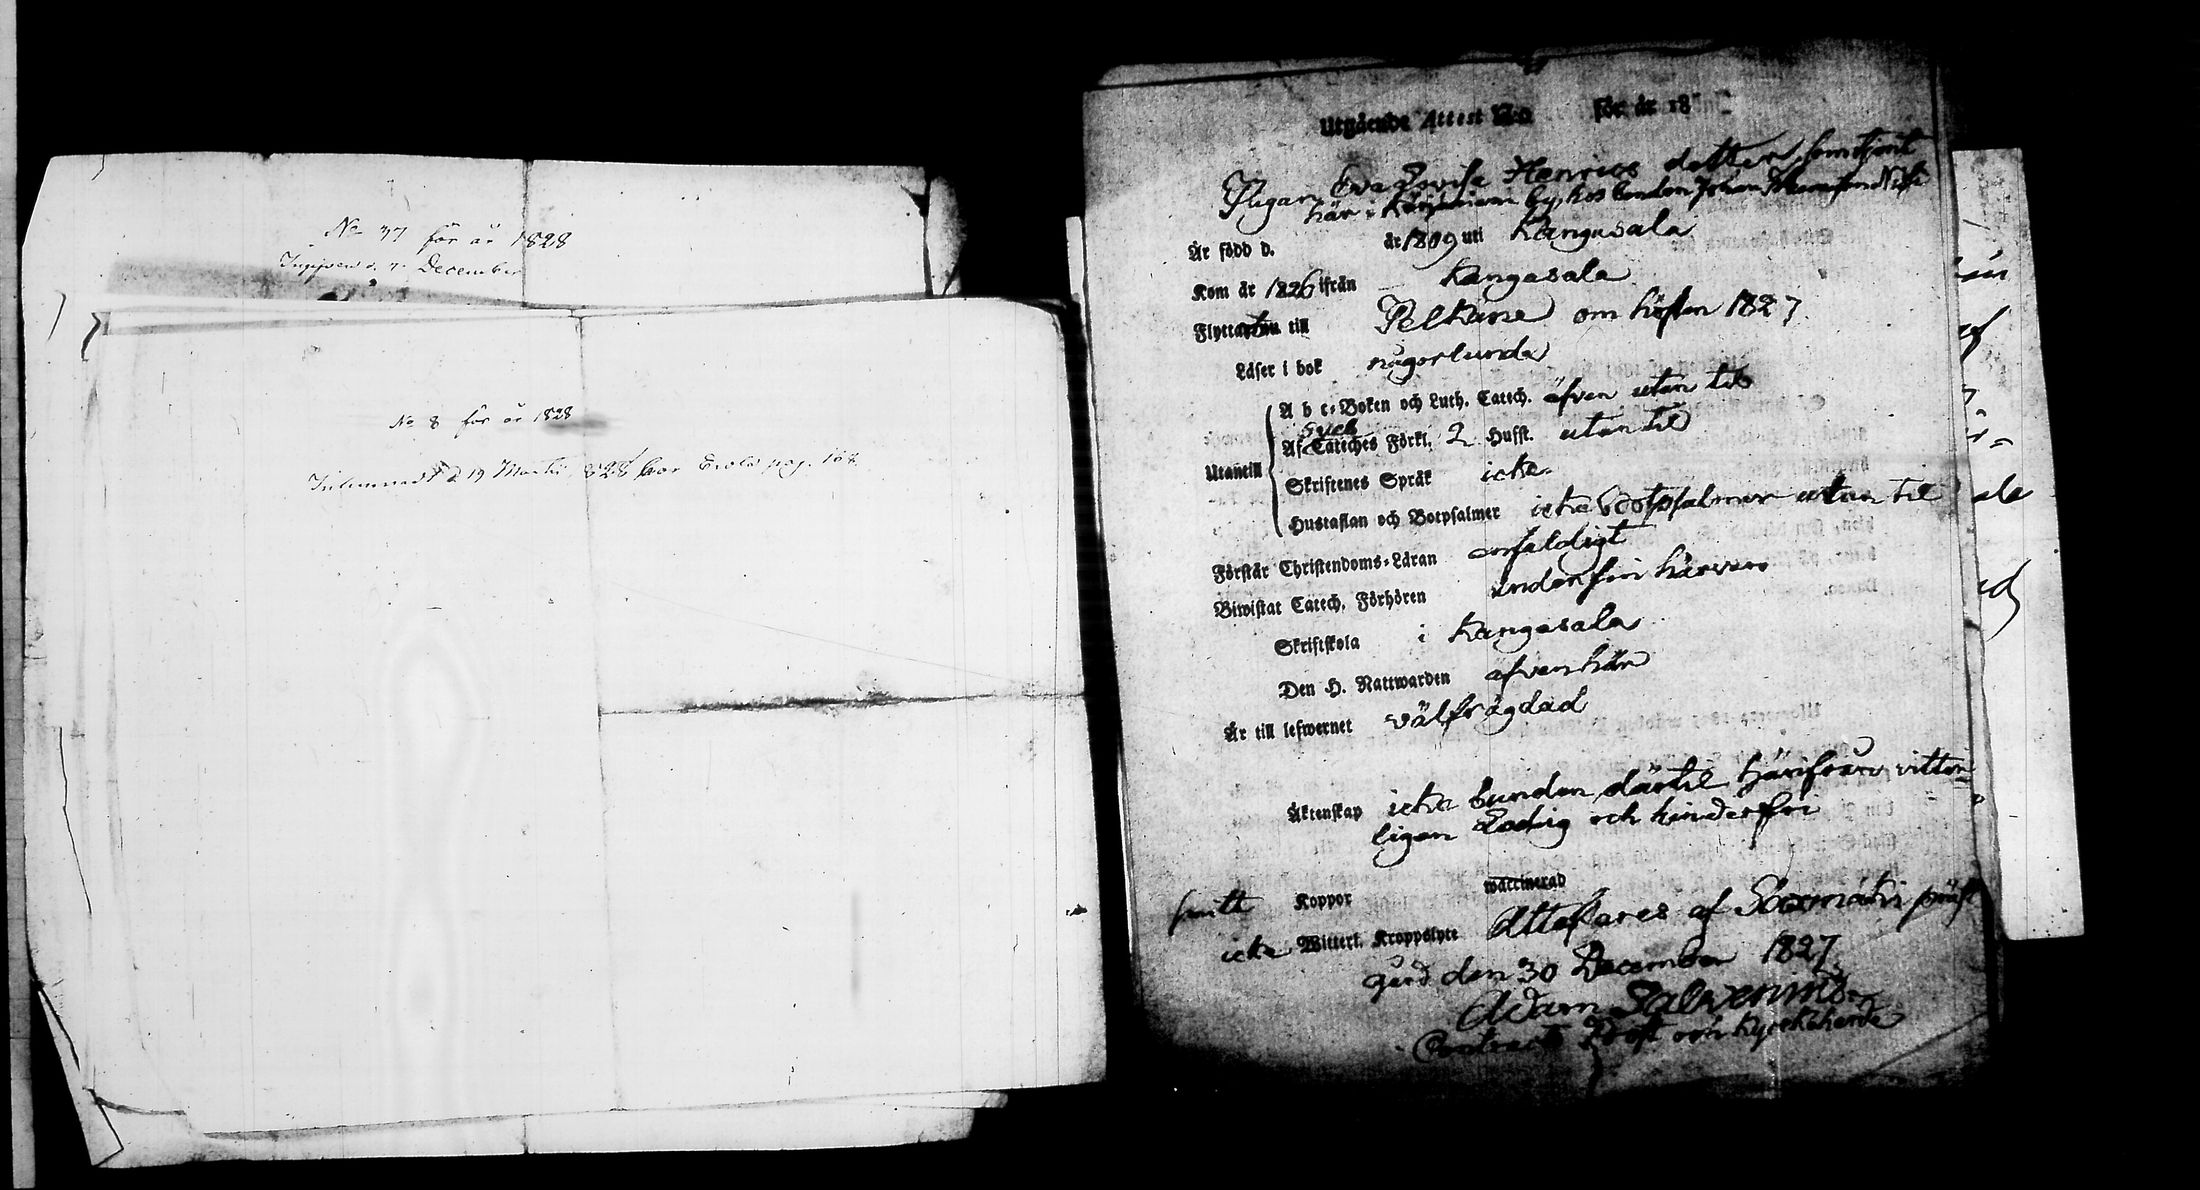 No 37 för år 1828
Ingifven d. 7. December
No 8 för år 1828
d 19 Martii 1828 pag. 168
Utgående Attest N:o för år 18
Pigan Eva Lovisa Henrics dotter, som tjent
här i by, hos bonden Johan
Är född d. år 1809 uti Kangasala
Kom år 1826 ifrån Kangasala
Flyttar till Pelkäne om hösten 1827
Läser i bok någorlunda
Utantill
A b c-Boken och Luth. Catech. äfven utan til
Sveb
Af Catiches Förkl. 2 Hufst. utan til
Skriftenes Språk icke
Hustaflan och Botpsalmer icke Botpsalmer utan til
Förstår Christendoms-Läran enfaldigt
Biwistat Catech. Förhören
Skriftskola i Kangasala
Den H. Nattwarden äfven här
Är till lefwernet välfrägdad
Äktenskap icke bunden, därtil härifrån vitter-
ligen Ledig och hinderfri
haft Koppor waccinerad
icke Witterl. Kroppslyte Attesteres af Säxmäki präst
gård den 30 December 1827
Adam Salvenius
Contracts Prost och Kyrckoherde